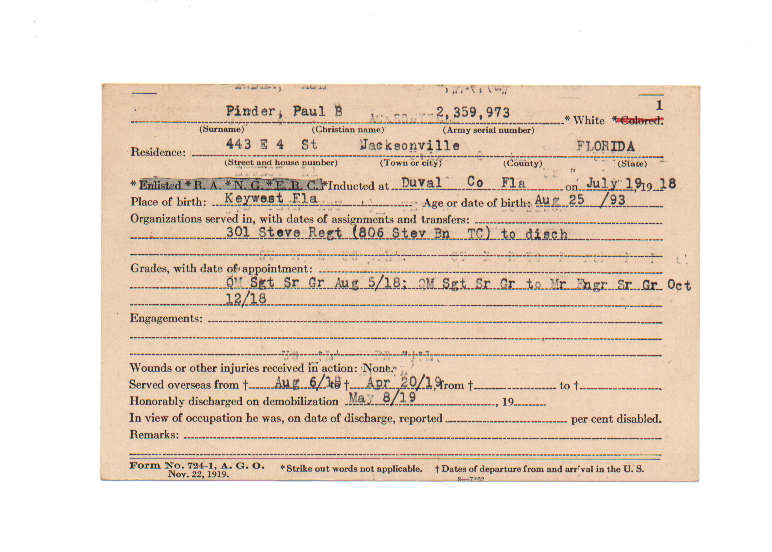 1
Pinder, Paul B 2,359,973 * White * Colored.
(Surname) (Christian name) (Army serial number)
Residence: 443 E 4 St Jacksonville FLORIDA
(Street and house number) (Town or city) (County) (State)
* Enlisted * R. A. * N. G. * E. R. C. * Inducted at Duval Co Fla on July 19, 19 18
Place of birth: Keywest Fla Age or date of birth: Aug 25 /93
Organizations served in, with dates of assignments and transfers:
301 Steve Regt (806 Stev Bn TC) to disch
Grades, with date of appointment:
QM Sgt Sr Gr Aug 5/18; QM Sgt Sr Gr to Mr Engr Sr Gr Oct
12/18
Engagements:
Wounds or other injuries received in action: None.
Served overseas from † Aug 6/18 to † Apr 20/19 from † to †
Honorably discharged on demobilization May 8/19, 19
In view of occupation he was, on date of discharge, reported per cent disabled.
Remarks:
Form No. 724-1, A. G. O. * Strike out words not applicable. † Dates of departure from and arrival in the U. S.
Nov. 22, 1919.